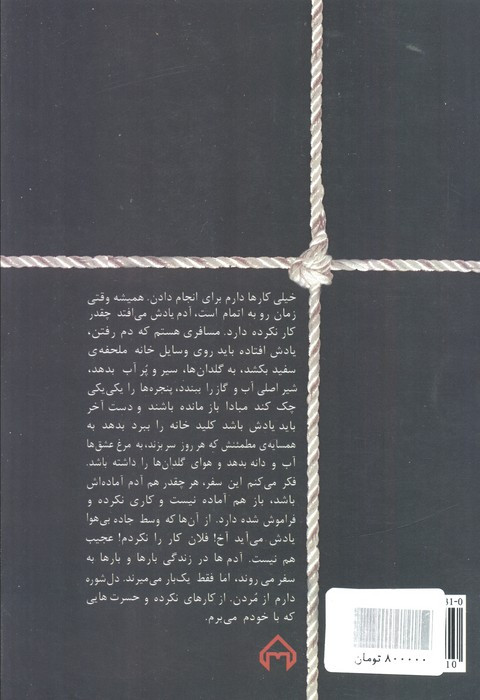 خیلی کارها دارم برای انجام دادن. همیشه وقتی
زمان رو به اتمام است، آدم یادش می‌افتد چقدر
کار نکرده دارد. مسافری هستم که دم رفتن،
یادش افتاده باید روی وسایل خانه ملحفه‌ی
سفید بکشد، به گلدان‌ها، سیر و پُر آب بدهد،
شیر اصلی آب و گاز را ببندد، پنجره‌ها را یکی‌یکی
چک کند مبادا باز مانده باشند و دست آخر
باید یادش باشد کلید خانه را ببرد بدهد به
همسایه‌ی مطمئنش که هر روز سر بزند، به مرغ عشق‌ها
آب و دانه بدهد و هوای گلدان‌ها را داشته باشد.
فکر می‌کنم این سفر، هر چقدر هم آدم آماده‌اش
باشد، باز هم آماده نیست و کاری نکرده و
فراموش شده دارد. از آن‌ها که وسط جاده بی‌هوا
یادش می‌آید آخ! فلان کار را نکردم! عجیب
هم نیست. آدم ها در زندگی بارها و بارها به
سفر می روند، اما فقط یک‌بار می‌میرند. دل‌شوره
دارم از مُردن. از کارهای نکرده و حسرت هایی
که با خودم می‌برم.
31-0
10
۸۰۰۰۰۰ تومان